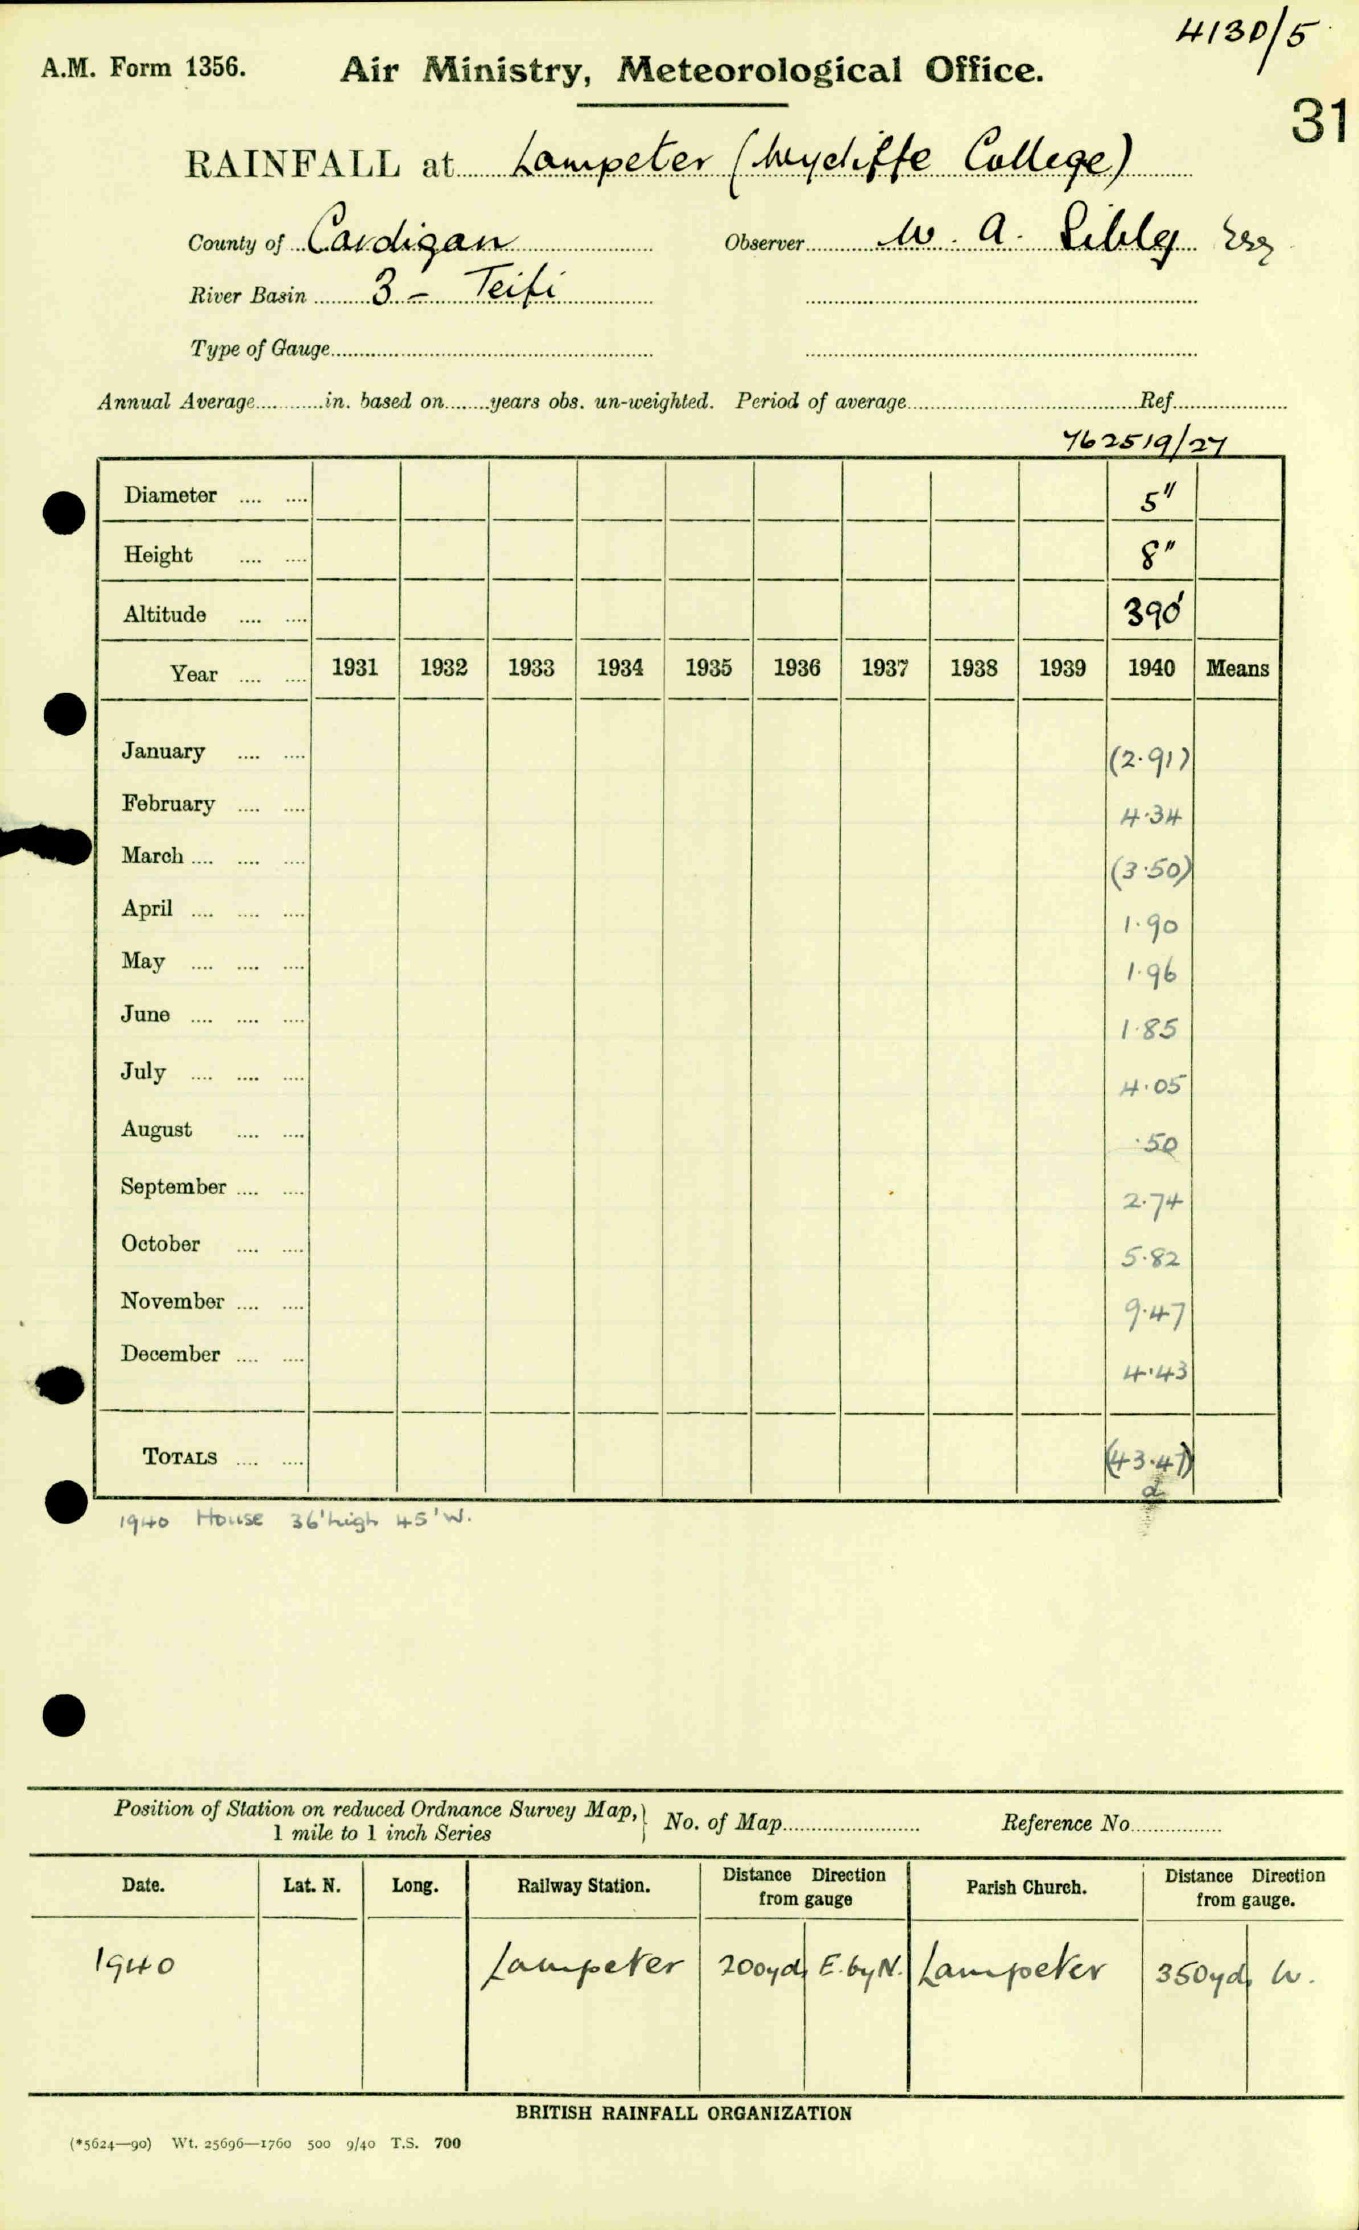 4130/5
A.M. Form 1356. Air Ministry, Meteorological Office.
31
RAINFALL at Lampeter (Wycliffe College)
County of Cardigan Observer W. A. Sibly Esq
River Basin 3 - Teifi
Type of Gauge
Annual Average in. based on years obs. un-weighted. Period of average Ref.
762519/27
Diameter 5"
Height 8"
Altitude 390'
Year 1931 1932 1933 1934 1935 1936 1937 1938 1939 1940 Means
January (2.91)
February 4.34
March (3.50)
April 1.90
May 1.96
June 1.85
July 4.05
August .50
September 2.74
October 5.82
November 9.47
December 4.43
TOTALS (43.47)
d
1940 House 36' high 45' W.
Position of Station on reduced Ordnance Survey Map, No. of Map Reference No
1 mile to 1 inch Series
Date. Lat. N. Long. Railway Station. Distance Direction from gauge Parish Church. Distance Direction from gauge.
1940 Lampeter 200yds E. by N. Lampeter 350yds W.
BRITISH RAINFALL ORGANIZATION
(*5624—90) Wt. 25696—1760 500 9/40 T.S. 700